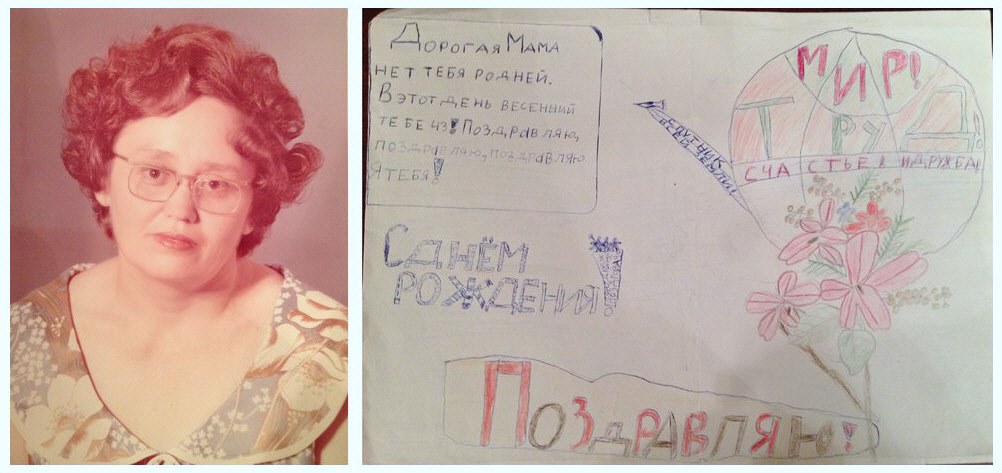 Дорогая Мама
нет тебя родней.
В этот день весенний
тебе 43! Поздравляю,
поздравляю, поздравляю
Я тебя!
С днём
рождения!
МИР!
ТРУД!
СЧАСТЬЕ И ДРУЖБА!
СПУТНИК
ВСЕЙ ЗЕМЛИ
Поздравляю!